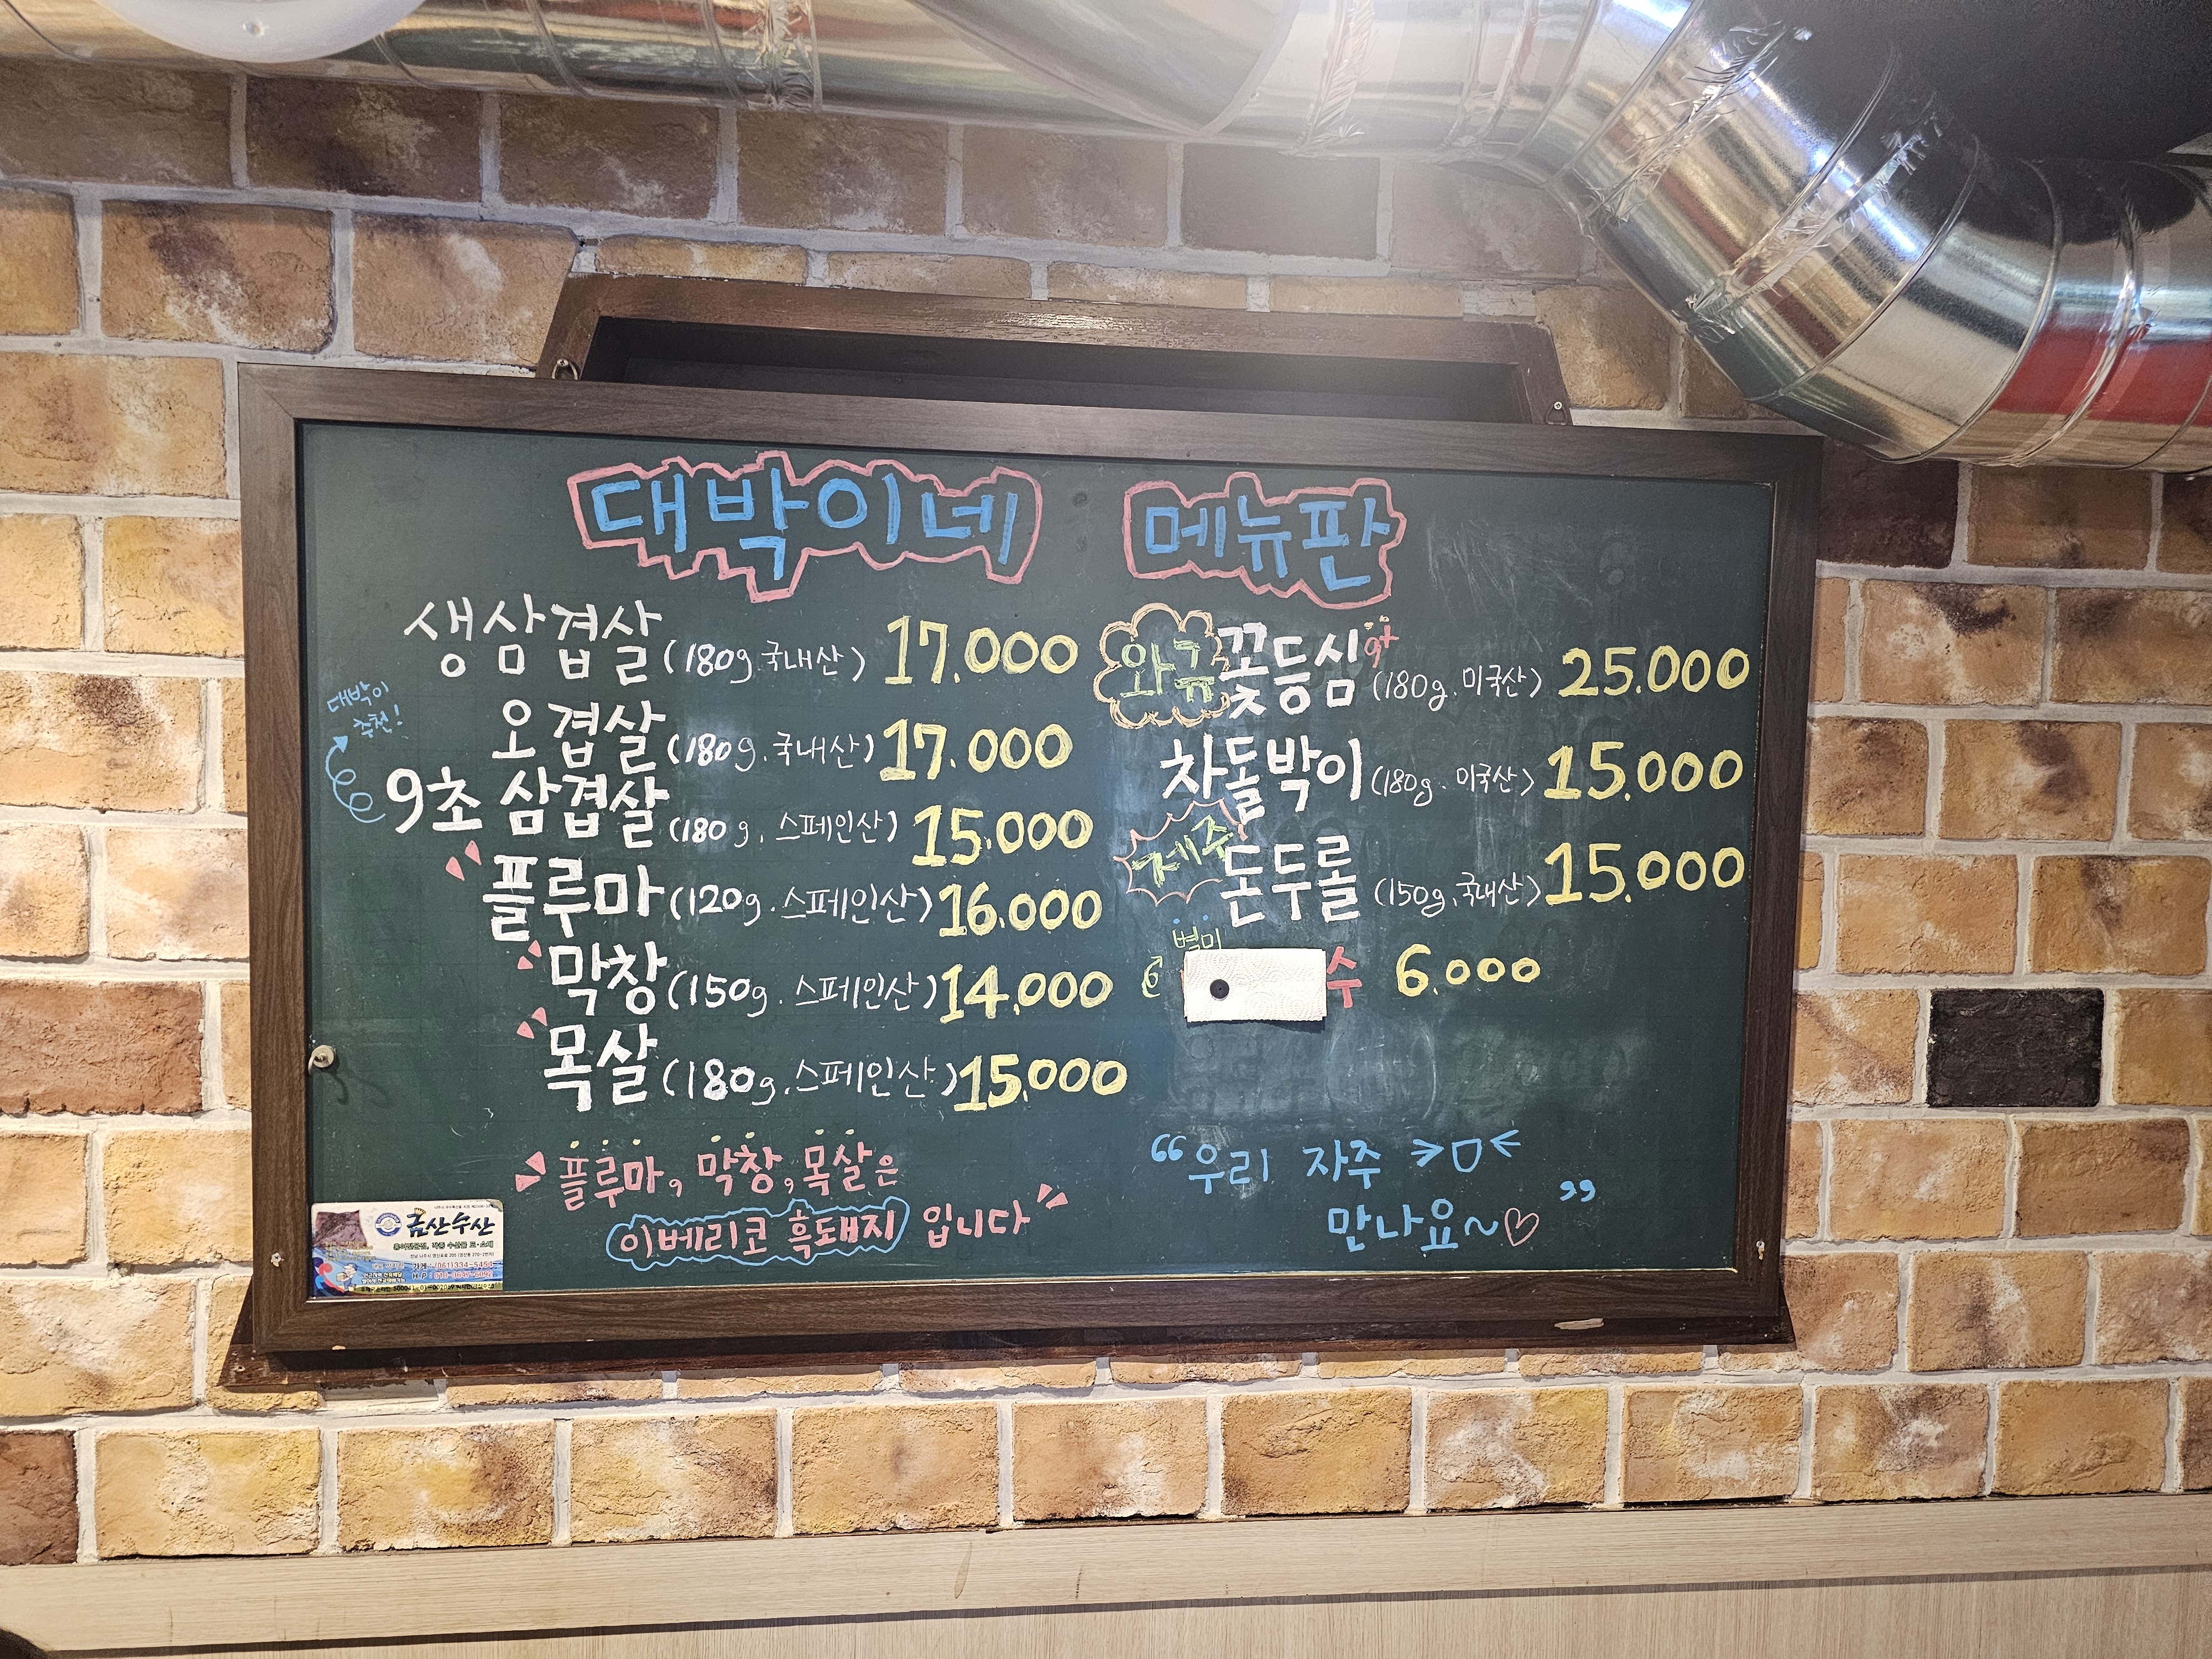 대박이네 메뉴판
생삼겹살 (180g.국내산) 17.000
오겹살 (180g.국내산) 17.000
대박이
추천!
9초 삼겹살 (180g. 스페인산) 15.000
플루마 (120g. 스페인산) 16.000
막창 (150g. 스페인산) 14.000
목살 (180g. 스페인산) 15.000
플루마, 막창, 목살은
이베리코 흑돼지 입니다
와규 꽃등심 9+ (180g. 미국산) 25.000
차돌박이 (180g. 미국산) 15.000
제주 돈두롤 (150g.국내산) 15.000
별미
수 6.000
“우리 자주 >ㅁ<
만나요~♡”
금산수산
가게 : (061)334-5454